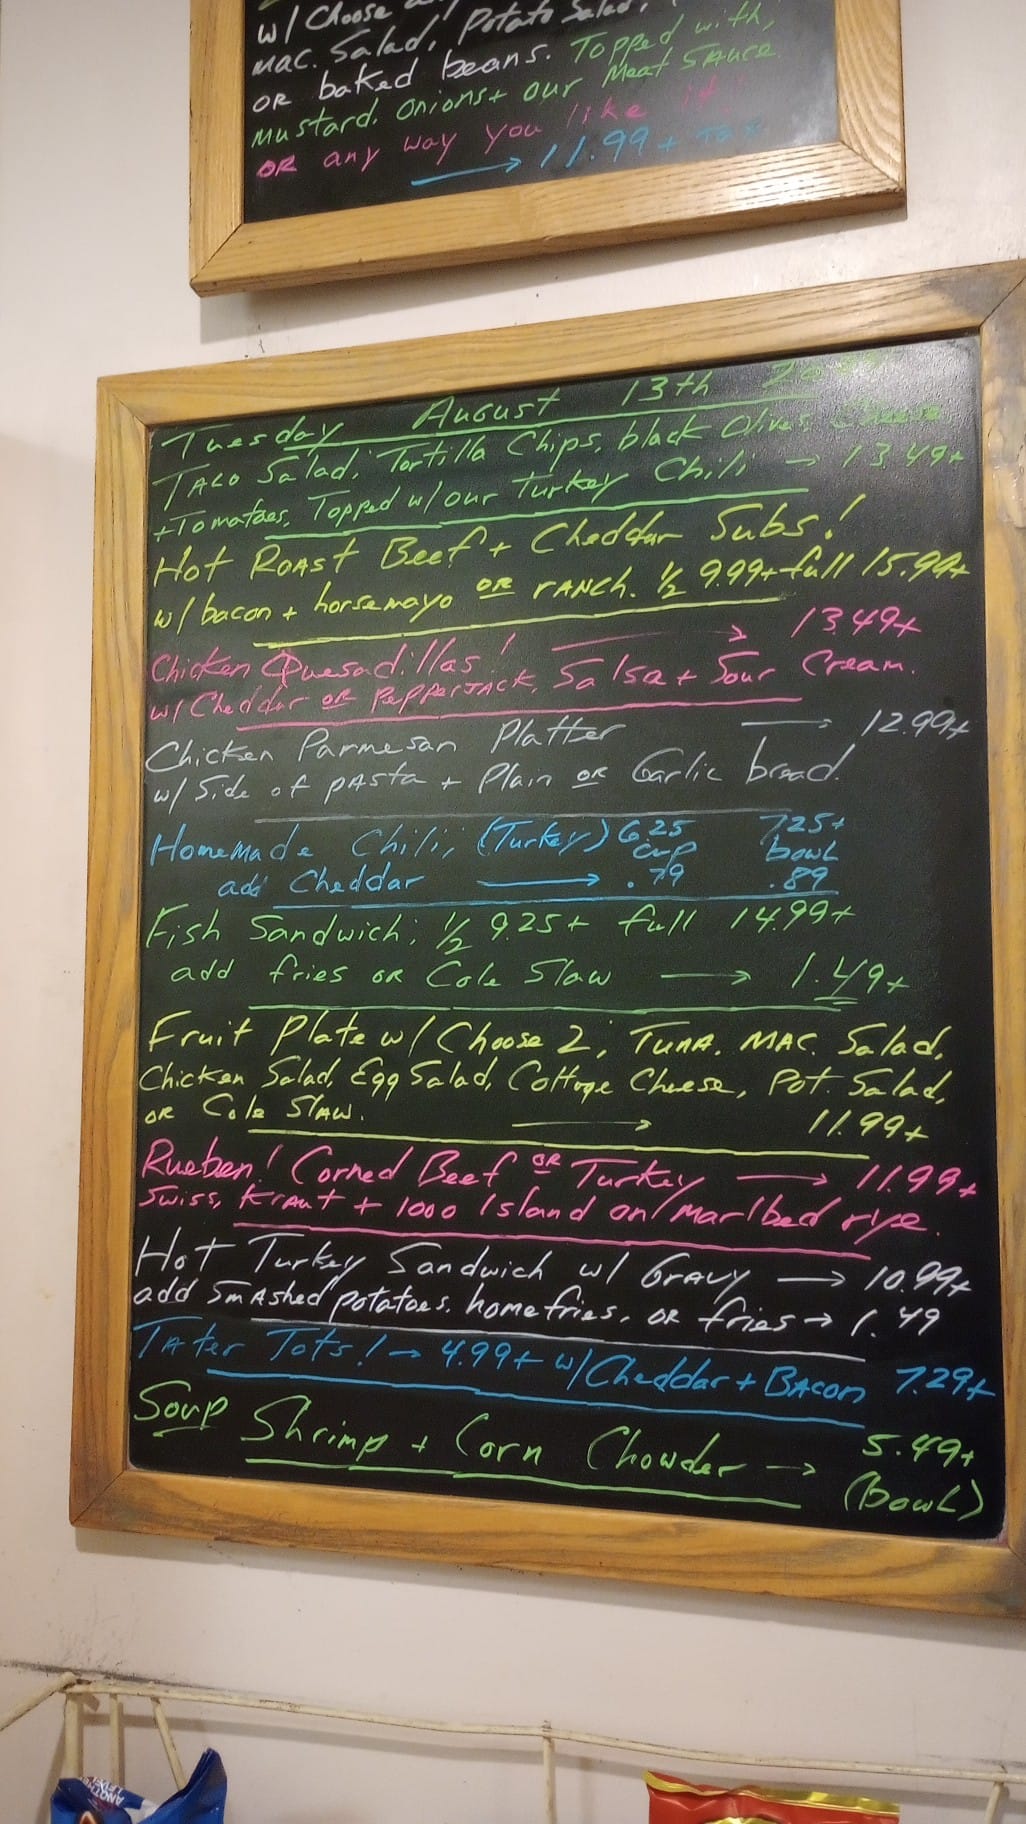 w/ Choose
Mac. Salad, Potato Salad,
OR baked beans. Topped with,
Mustard, onions + our Meat Sauce
OR any way you like it!
→ 11.99 + Tax
Tuesday August 13th
Taco Salad; Tortilla Chips, black Olives, Cheese
+ Tomatoes, Topped w/ our Turkey Chili → 13.49+
Hot Roast Beef + Cheddar Subs!
w/ bacon + horsemayo OR RANCH. 1/2 9.99+ full 15.99+
Chicken Quesadillas! → 13.49+
w/ Cheddar OR PepperJACK, Salsa + Sour Cream.
Chicken Parmesan Platter → 12.99+
w/ Side of pAsta + Plain OR Garlic bread.
Homemade Chili; (Turkey) 6.25 7.25+
cup bowl
add Cheddar → .79 .89
Fish Sandwich; 1/2 9.25+ full 14.99+
add fries OR Cole Slaw → 1.49+
Fruit Plate w/ Choose 2; Tuna. MAC. Salad,
Chicken Salad, Egg Salad, Cottage Cheese, Pot. Salad,
OR Cole Slaw. → 11.99+
Rueben! Corned Beef OR Turkey → 11.99+
Swiss, Kraut + 1000 Island on/ marlbed rye.
Hot Turkey Sandwich w/ Gravy → 10.99+
add Smashed potatoes, homefries, OR fries → 1.49
Tater Tots! → 4.99+ w/ Cheddar + Bacon 7.29+
Soup Shrimp + Corn Chowder → 5.49+
(Bowl)